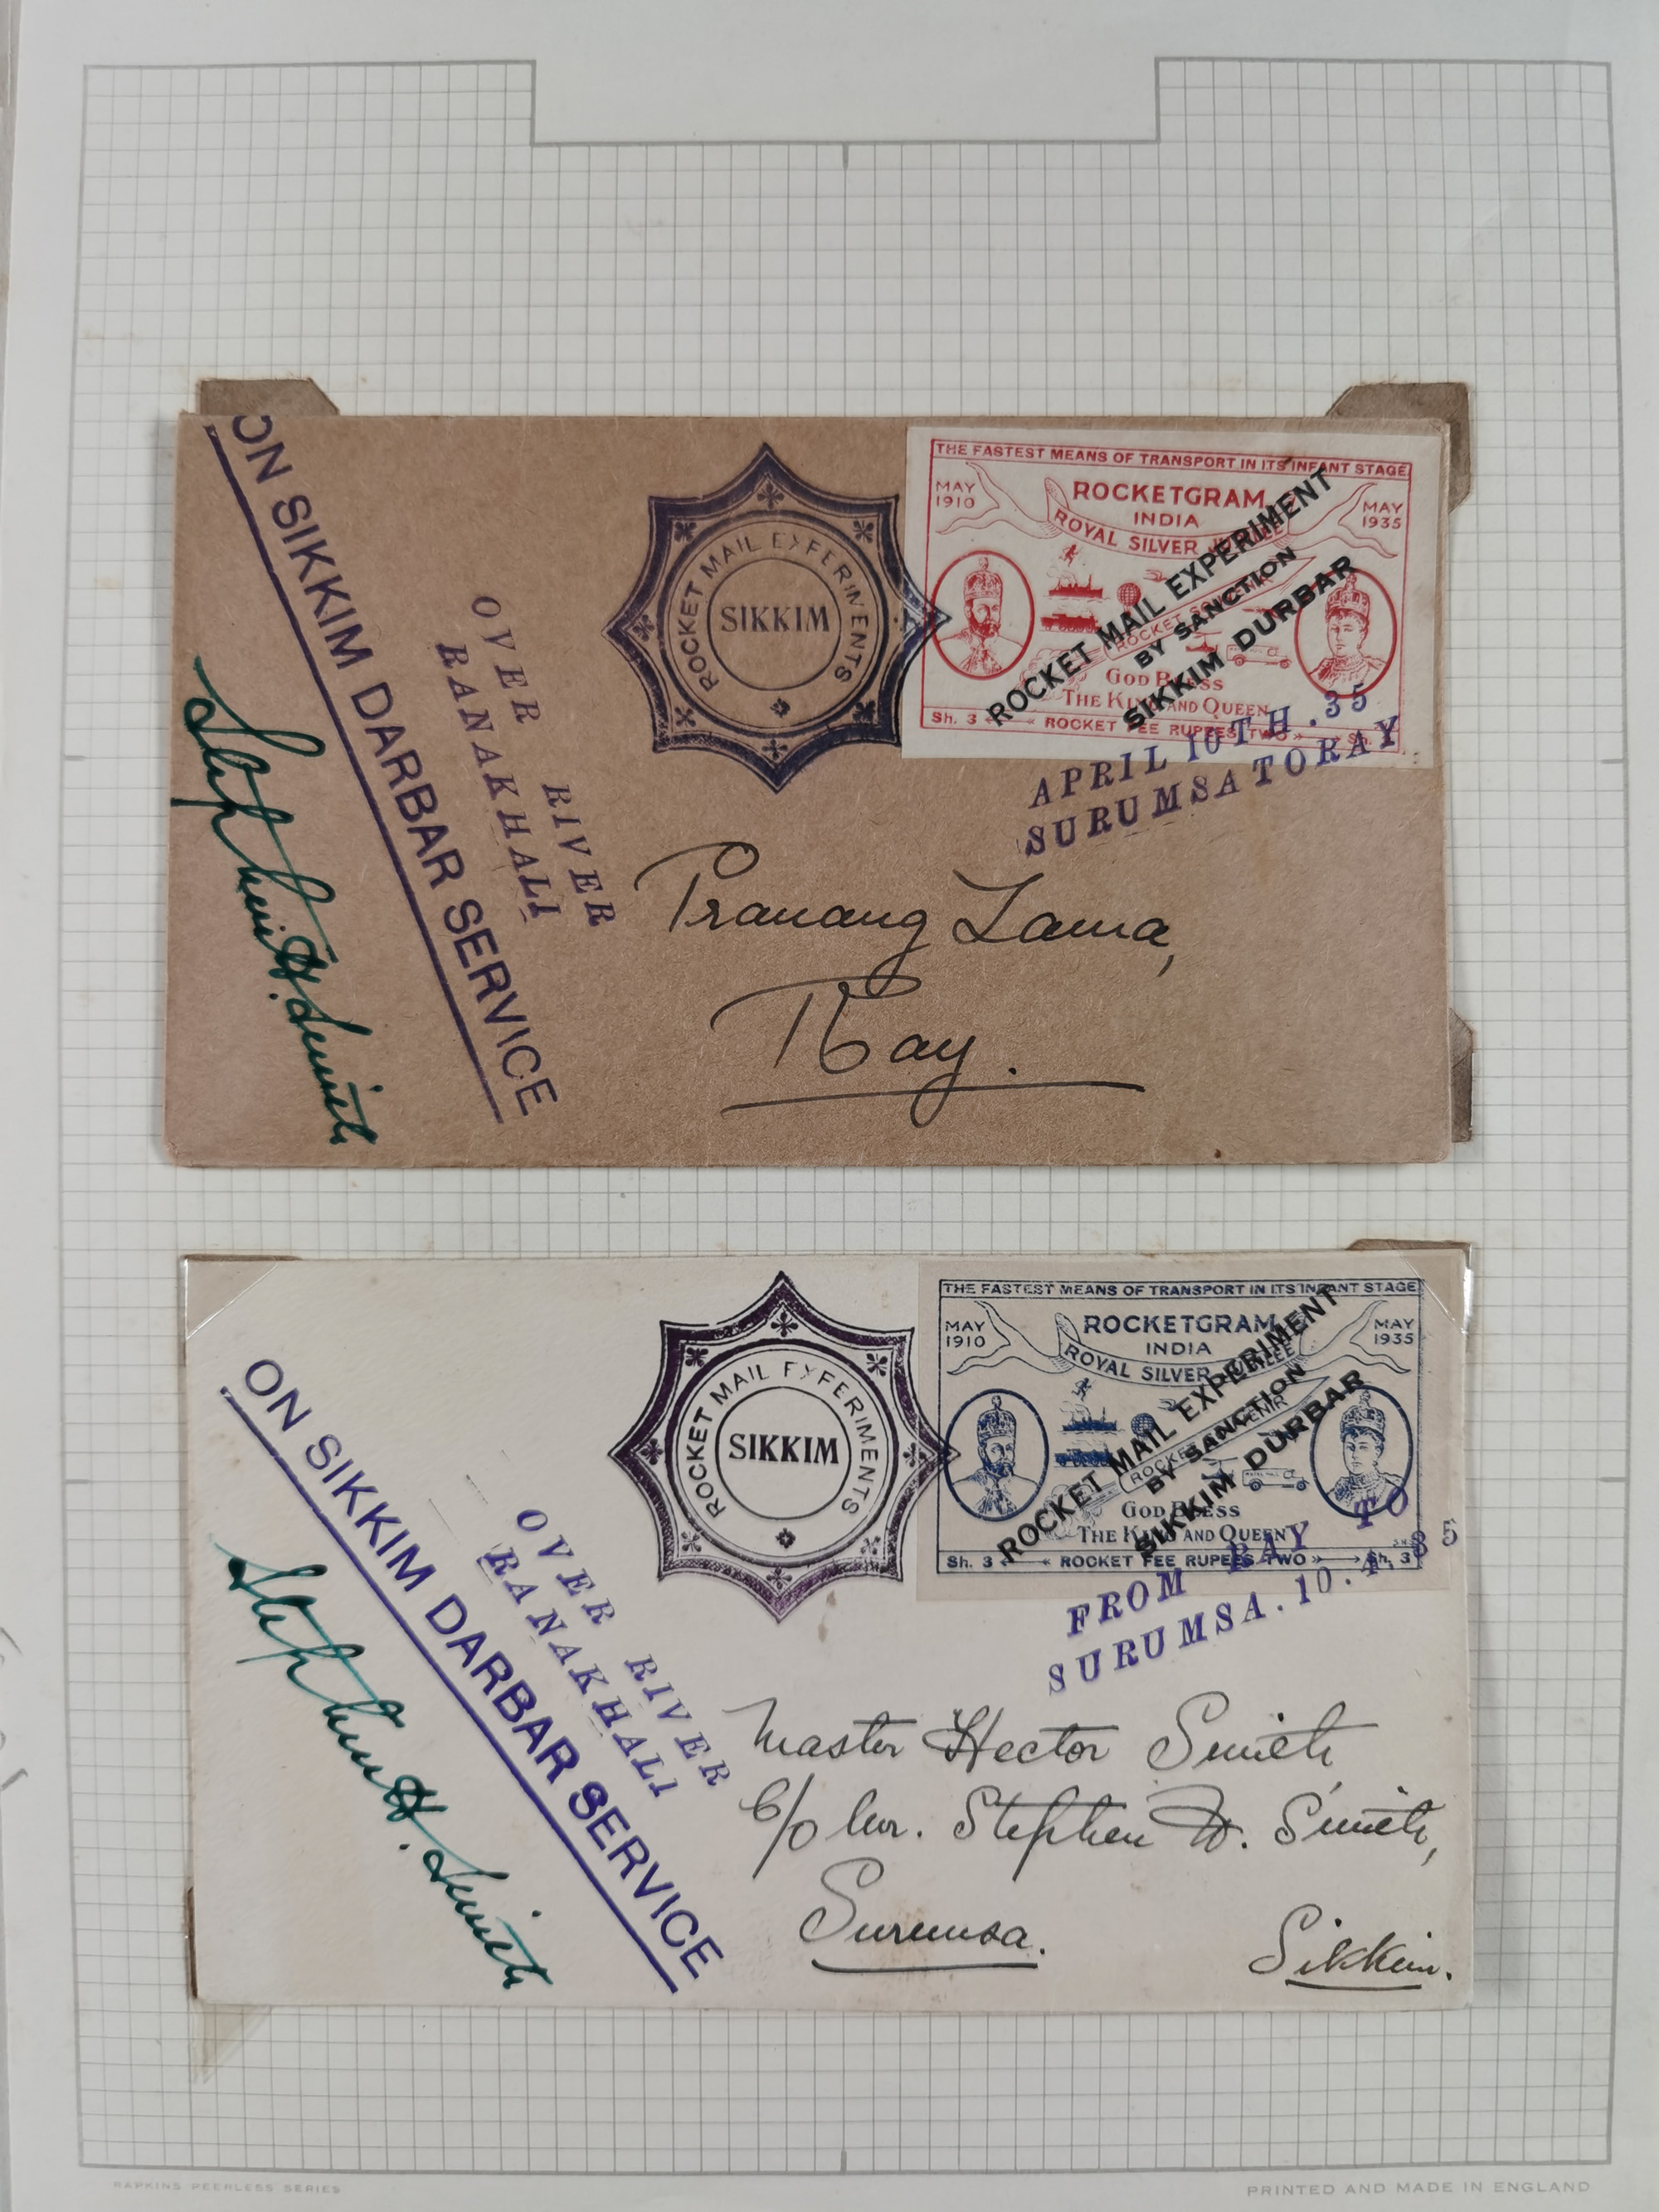 ON SIKKIM DARBAR SERVICE
Stephen H. Smith
OVER RIVER
RANAKHALI
ROCKET MAIL EXPERIMENTS
SIKKIM
THE FASTEST MEANS OF TRANSPORT IN ITS INFANT STAGE
MAY 1910
ROCKETGRAM
INDIA
ROYAL SILVER JUBILEE
MAY 1935
GOD BLESS
THE KING AND QUEEN
Sh. 3 ROCKET FEE RUPEES TWO Sh. 3
ROCKET MAIL EXPERIMENT
BY SANCTION
SIKKIM DURBAR
APRIL 10TH.35
SURUMSATORAY
Pranang Lama,
Ray.
ON SIKKIM DARBAR SERVICE
Stephen H. Smith
OVER RIVER
RANAKHALI
ROCKET MAIL EXPERIMENTS
SIKKIM
THE FASTEST MEANS OF TRANSPORT IN ITS INFANT STAGE
MAY 1910
ROCKETGRAM
INDIA
ROYAL SILVER JUBILEE
MAY 1935
GOD BLESS
THE KING AND QUEEN
Sh. 3 ROCKET FEE RUPEES TWO Sh. 3
ROCKET MAIL EXPERIMENT
BY SANCTION
SIKKIM DURBAR
FROM RAY TO
SURUMSA.10.4.35
Master Hector Smith
C/o Mr. Stephen H. Smith,
Surumsa.
Sikkim.
RAPKINS PEERLESS SERIES
PRINTED AND MADE IN ENGLAND